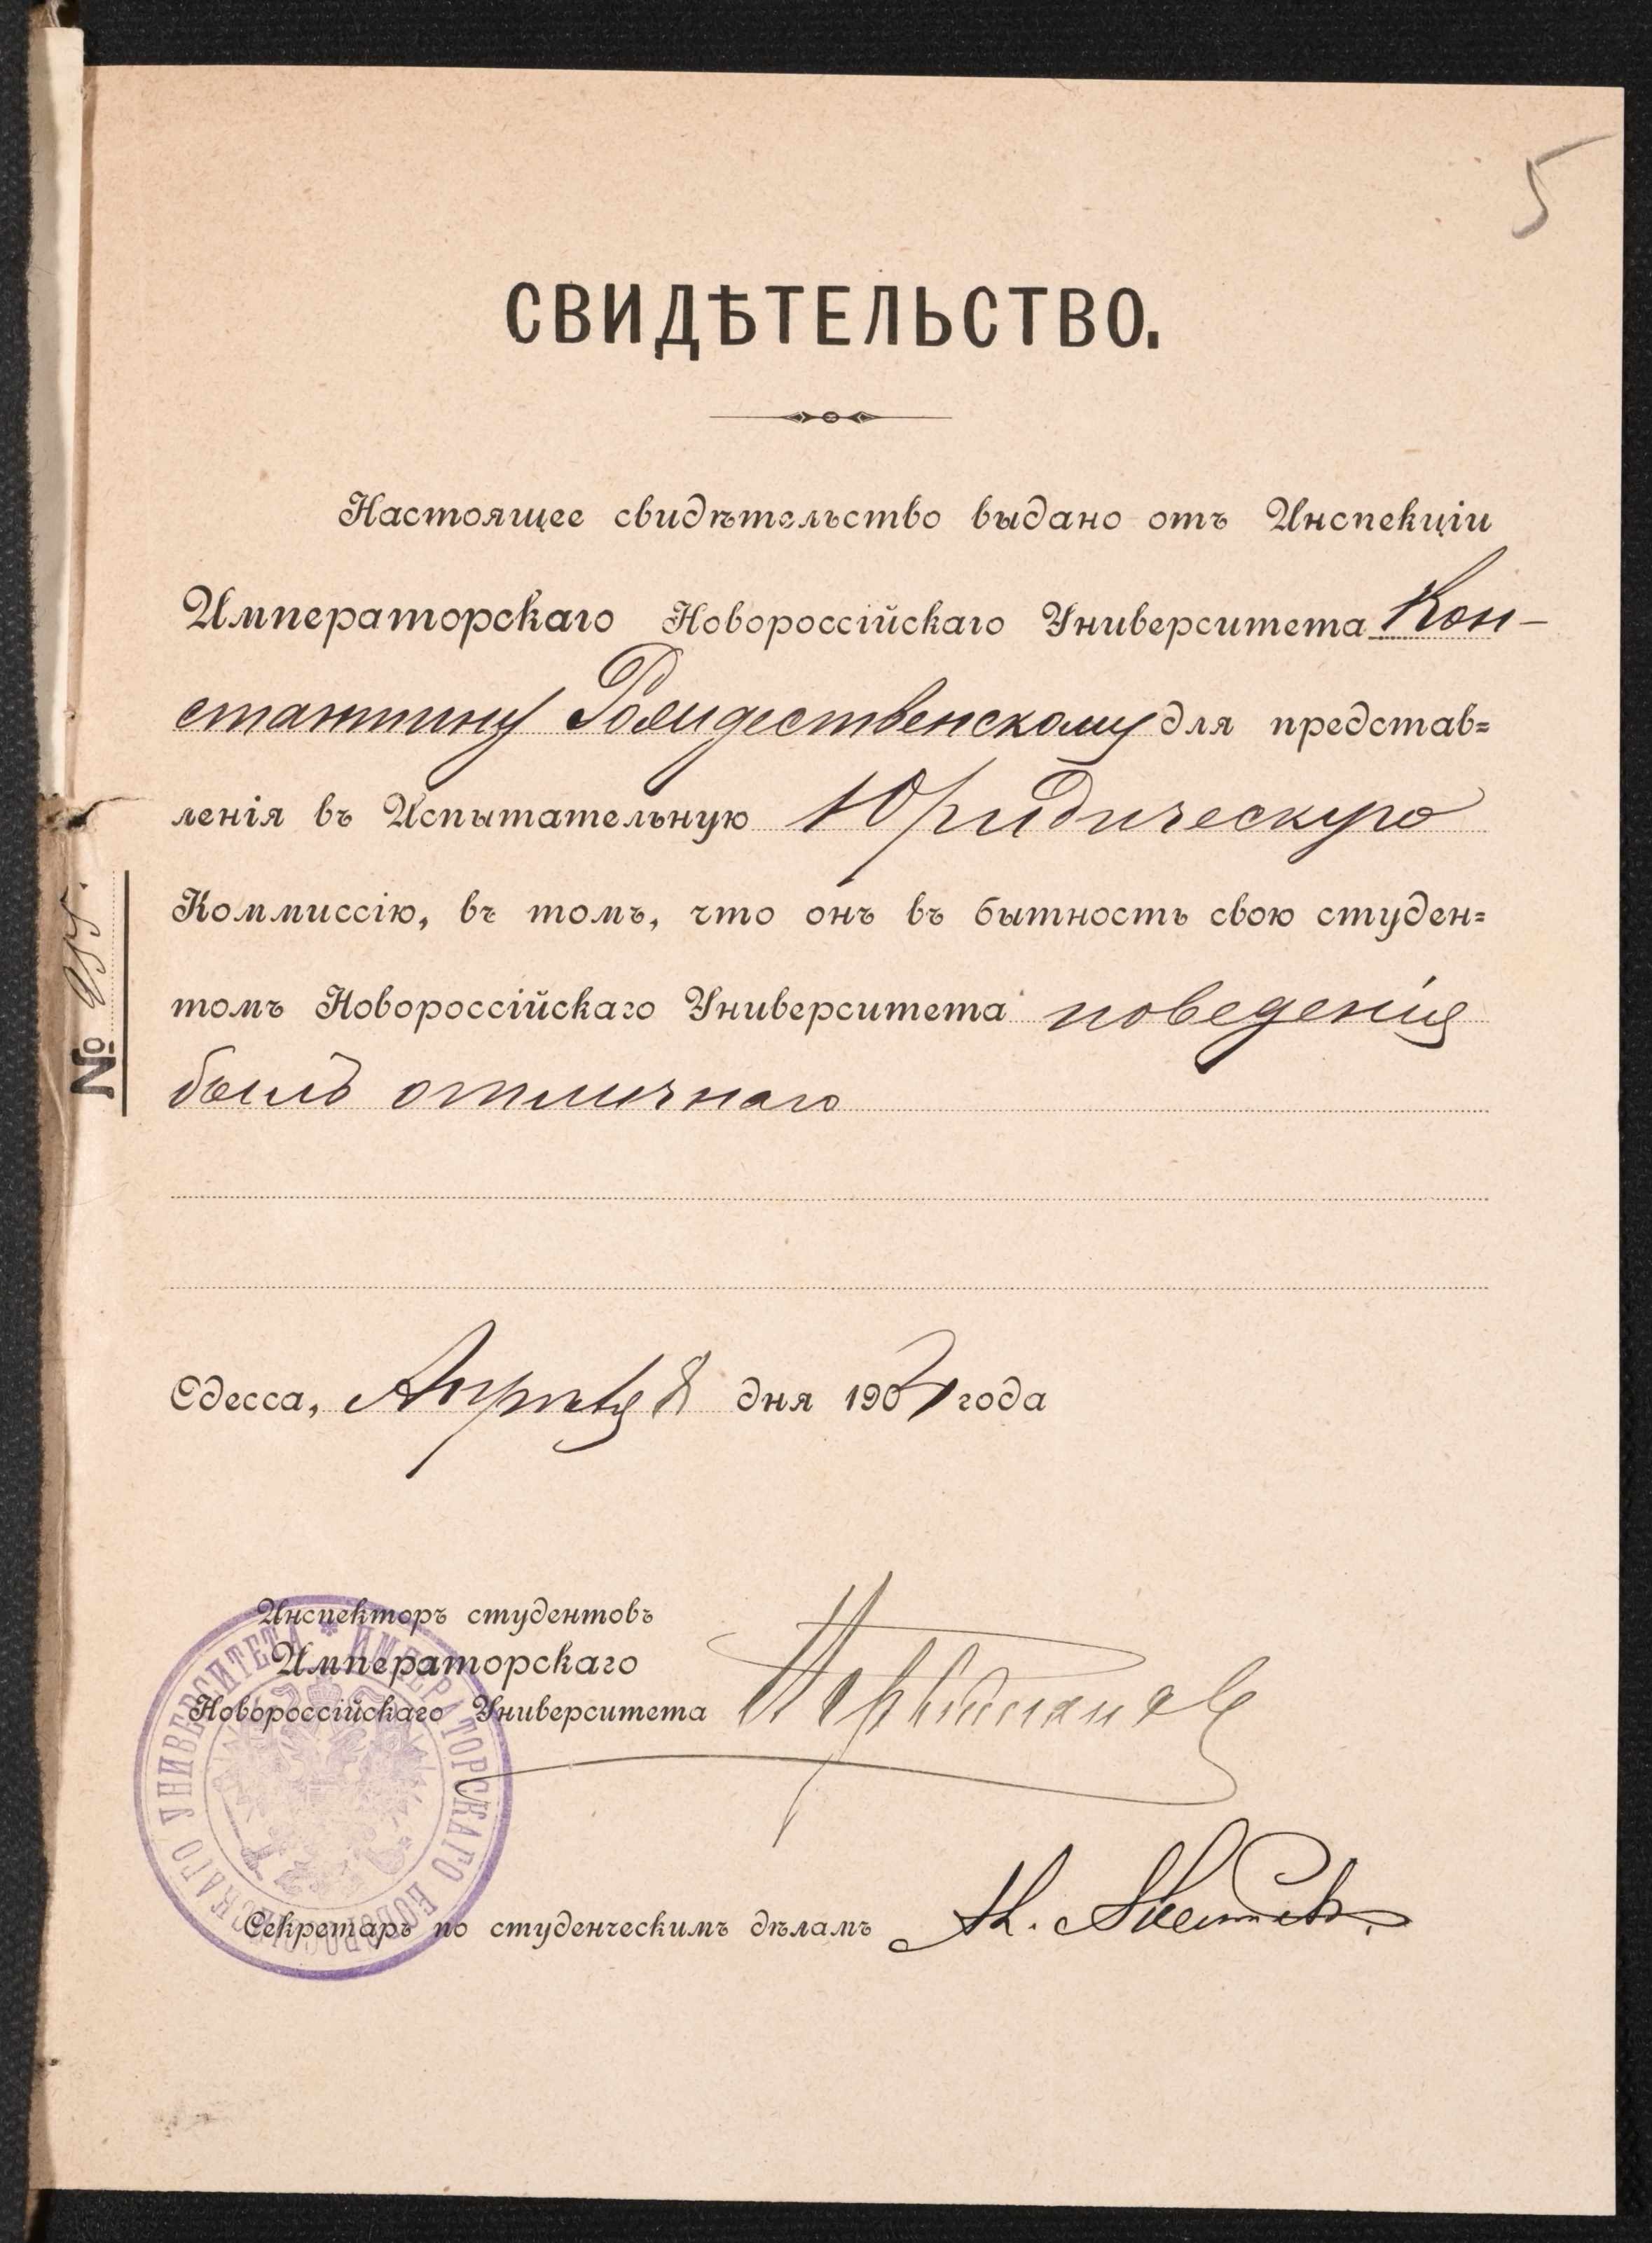 5
СВИДѢТЕЛЬСТВО.
Настоящее свидѣтельство выдано отъ Инспекціи
Императорскаго Новороссійскаго Университета Кон-
стантину Рождественскому для представ=
ленія въ Испытательную Юридическую
Коммиссію, въ томъ, что онъ въ бытность свою студен=
томъ Новороссійскаго Университета поведенія
былъ отличнаго
№
Одесса, Апрѣля 8 дня 190 года
Инспекторъ студентовъ
Императорскаго
Новороссійскаго Университета
Секретарь по студенческимъ дѣламъ
* ИМПЕРАТОРСКАГО НОВОРОССІЙСКАГО УНИВЕРСИТЕТА